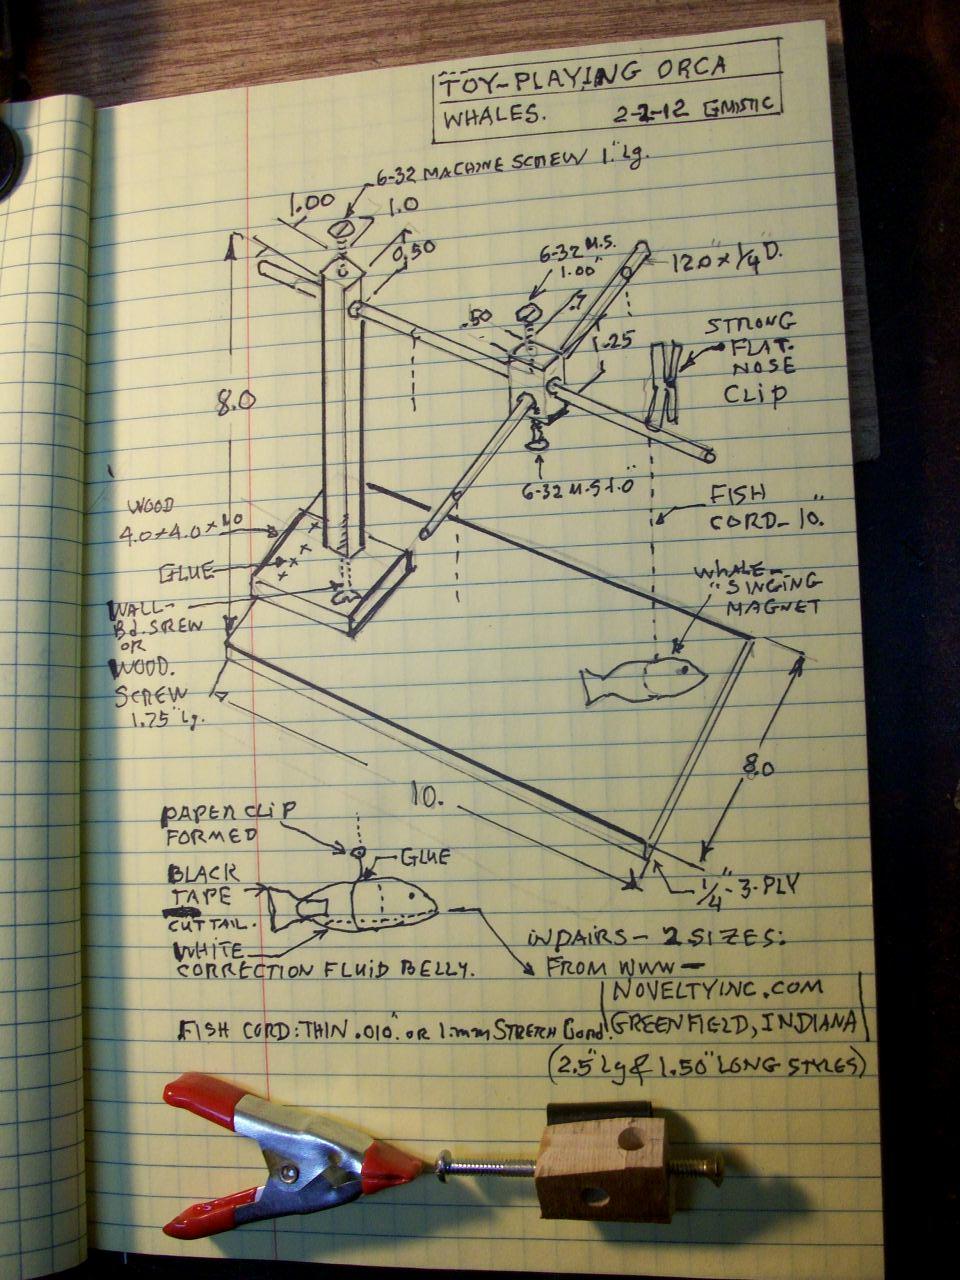 TOY-PLAYING ORCA
WHALES. 2-2-12 GMISTIC
6-32 MACHINE SCREW 1." Lg.
1.00
1.0
0.50
6-32 M.S.
1.00"
12.0" x 1/4" D.
.50
.7
1.25
STRONG
FLAT-
NOSE
CLIP
8.0
6-32 M.S 1.0"
FISH
CORD- 10."
WOOD
4.0 x 4.0 x 1.0
GLUE
WHALE-
"SINGING
MAGNET
WALL-
Bd. SREW
OR
WOOD.
SCREW
1.75" Lg.
8.0
10.
1/4"-3-PLY
PAPER CLIP
FORMED
GLUE
BLACK
TAPE
CUT TAIL.
WHITE
CORRECTION FLUID BELLY.
IN PAIRS- 2 SIZES:
FROM WWW-
NOVELTYINC.COM
GREENFIELD, INDIANA
FISH CORD: THIN .010" OR 1.mm STRETCH CORD.
(2.5" Lg & 1.50" LONG STYLES)